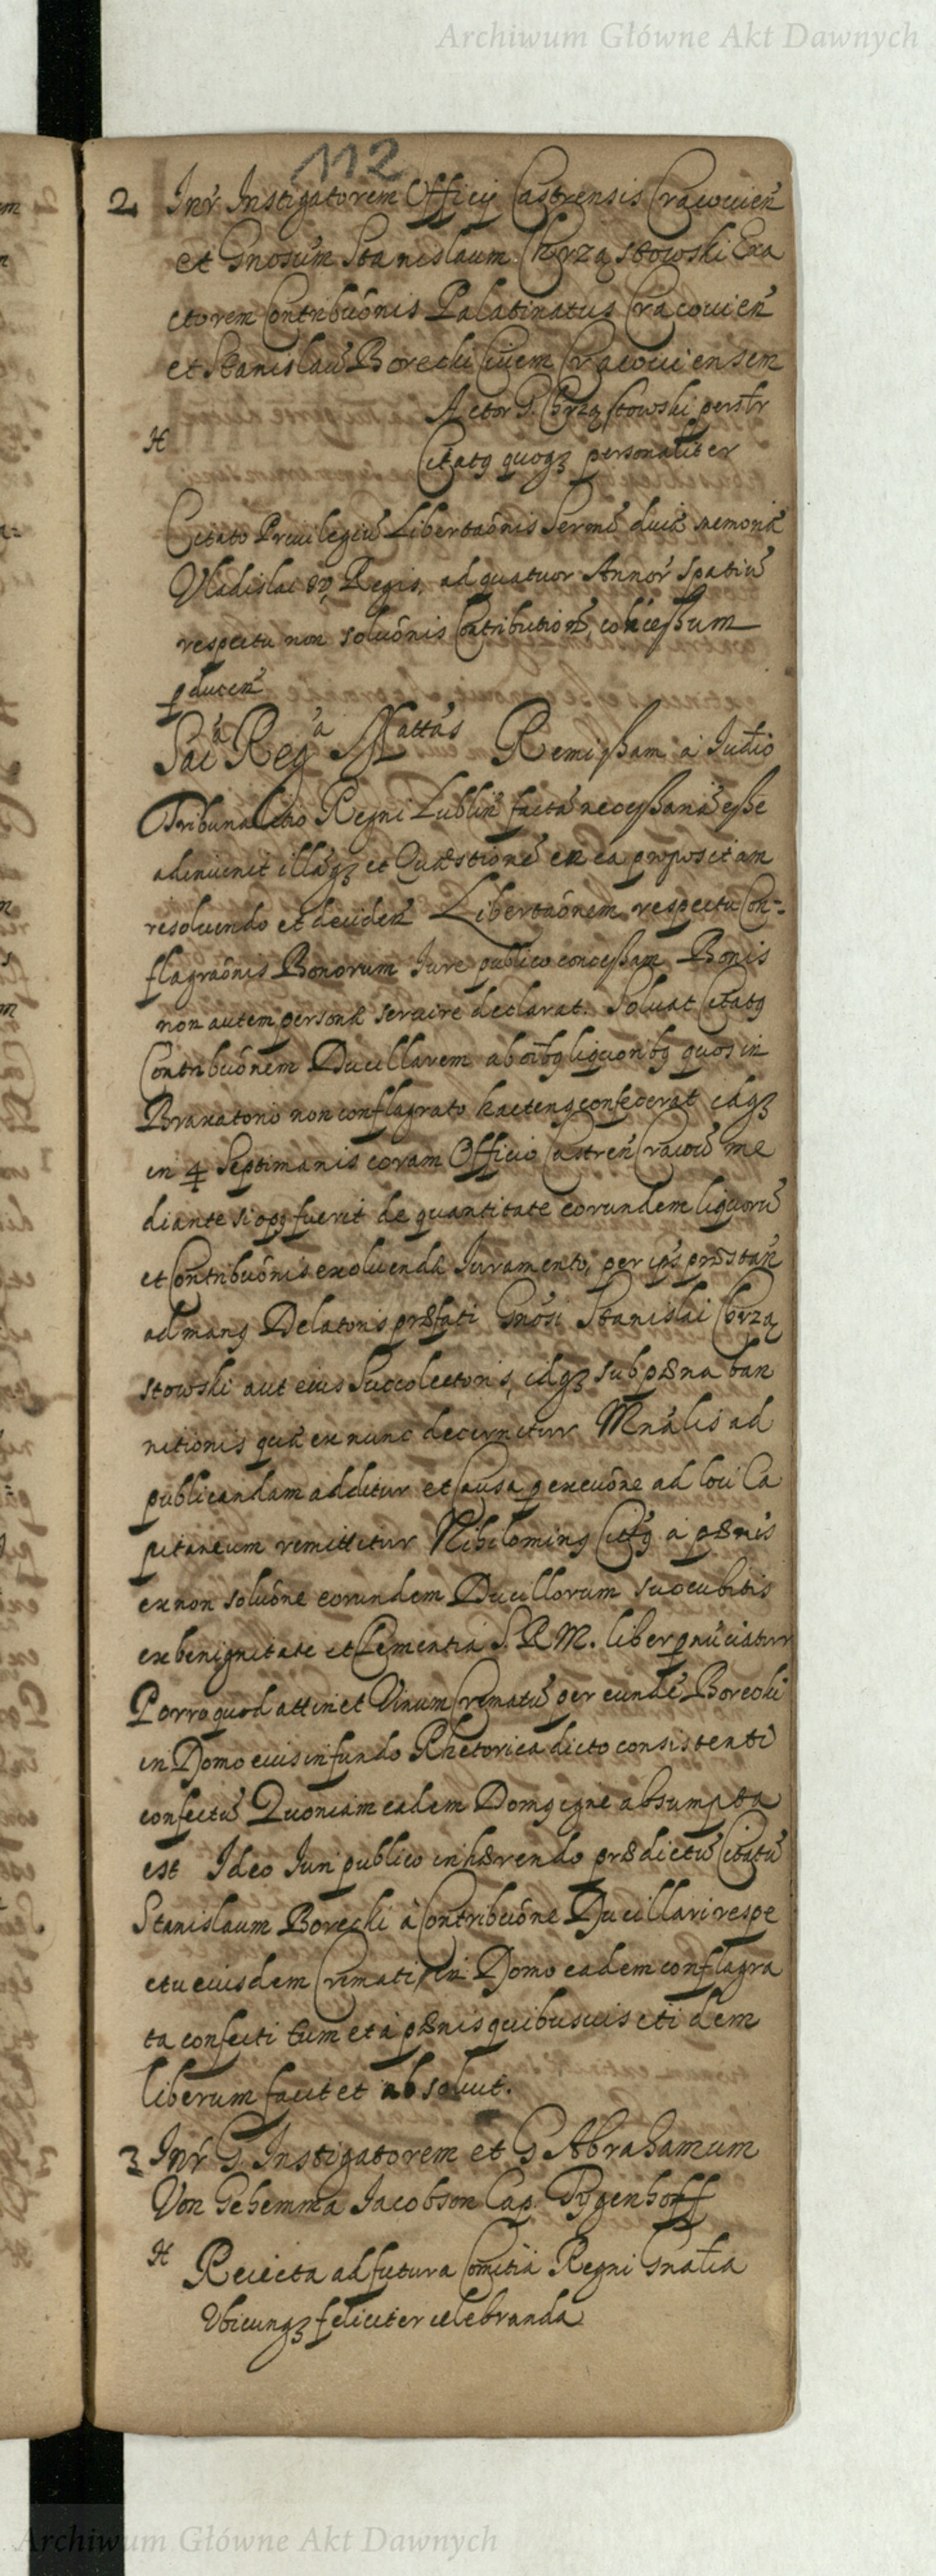 Archiwum Główne Akt Dawnych
112
2 Inr̃ Instigatorem Officij Castrensis Cracouień
et Gnosum̃ Stanislaum Chrząstowski Exa
ctorem Contribuõnis Palatinatus Cracouień
et Stanislaũ Borecki Ciuem Cracouiensem
Actor G. Chrząstowski perstr
H
Citatq quoqz personaliter
Citato Priuilegiũ Libertaõnis Sermĩ diuæ memoriæ
Vladislai IV, Regis, ad quatuor Annor̃ spatiũ
respectu non soluõnis Contribution̄, concessum
pducen̄
Saca Rega Mattas Remissam a Iudio
Tribunalitio Regni Lublin̄ factã necessariã esse
adinuenit illãqz et Quæstionẽ ex ea propositam
resoluendo et deciden̄ Libertaõnem respectu Con=
flagraõnis Bonorum Iure publico concessam Bonis
non autem personæ seruire declarat. Soluat Citatq
Contribuõnem Ducillarem ab oĩbq liquoribq quos in
Braxatorio non conflagrato hactenq confecerat idqz
in 4 Septimanis coram Officio Castren̄ Cracoũ me
diante si opq fuerit de quantitate eorundem liquorũ
et Contribuõnis exoluendæ Iuramento, per ips̃ præstan̄
ad manq Delatoris præfati Gnosi Stanislai Chrzą
stowski aut eius Succolectoris, idqz sub pæna ban
nitionis quæ ex nunc decernitur Mnalis ad
publicandam additur et Causa p exeuõne ad loci Ca
pitaneum remittitur Nihilominq Citatq a pænis
ex non soluõne eorundem Ducillorum succubitis
ex benignitate et Clementia S. R M. liber pnũciatur
Porro quod attinet Vinum Crematũ per eundẽ Borecki
in Domo eius in fundo Rhetorica dicto consistenti
confectũ Quoniam eadem Domq igne absumpta
est Ideo Iuri publico inhærendo prædictũ Citatũ
Stanislaum Borecki a Contribuõne Ducillari respe
ctu eiusdem Cremati, in Domo eadem conflagra
ta confecti tum et a pænis quibusuis eti dem
liberum facit et absoluit.
3 Inr̃ G. Instigatorem et G Abrahamum
Von Gehemma Iacobson Cap. Pygenhoff
H Reiecta ad futura Comitia Regni Gnalia
Vbicunqz feliciter celebranda
Archiwum Główne Akt Dawnych